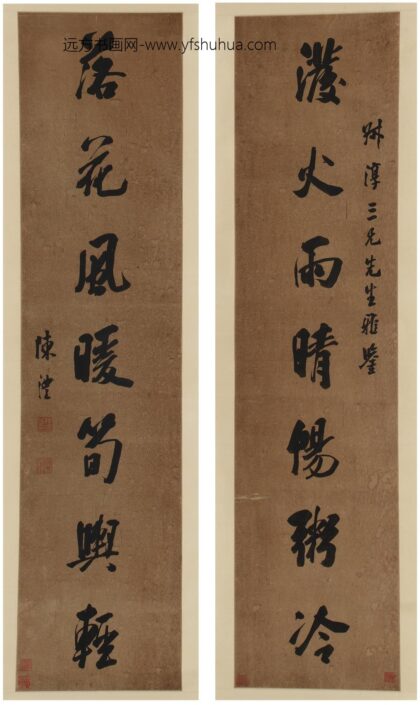 远方书画网-www.yfshuhua.com
淳三兄先生雅鑒
潑火雨晴餳粥冷
落花風暖筍輿輕
陳澧